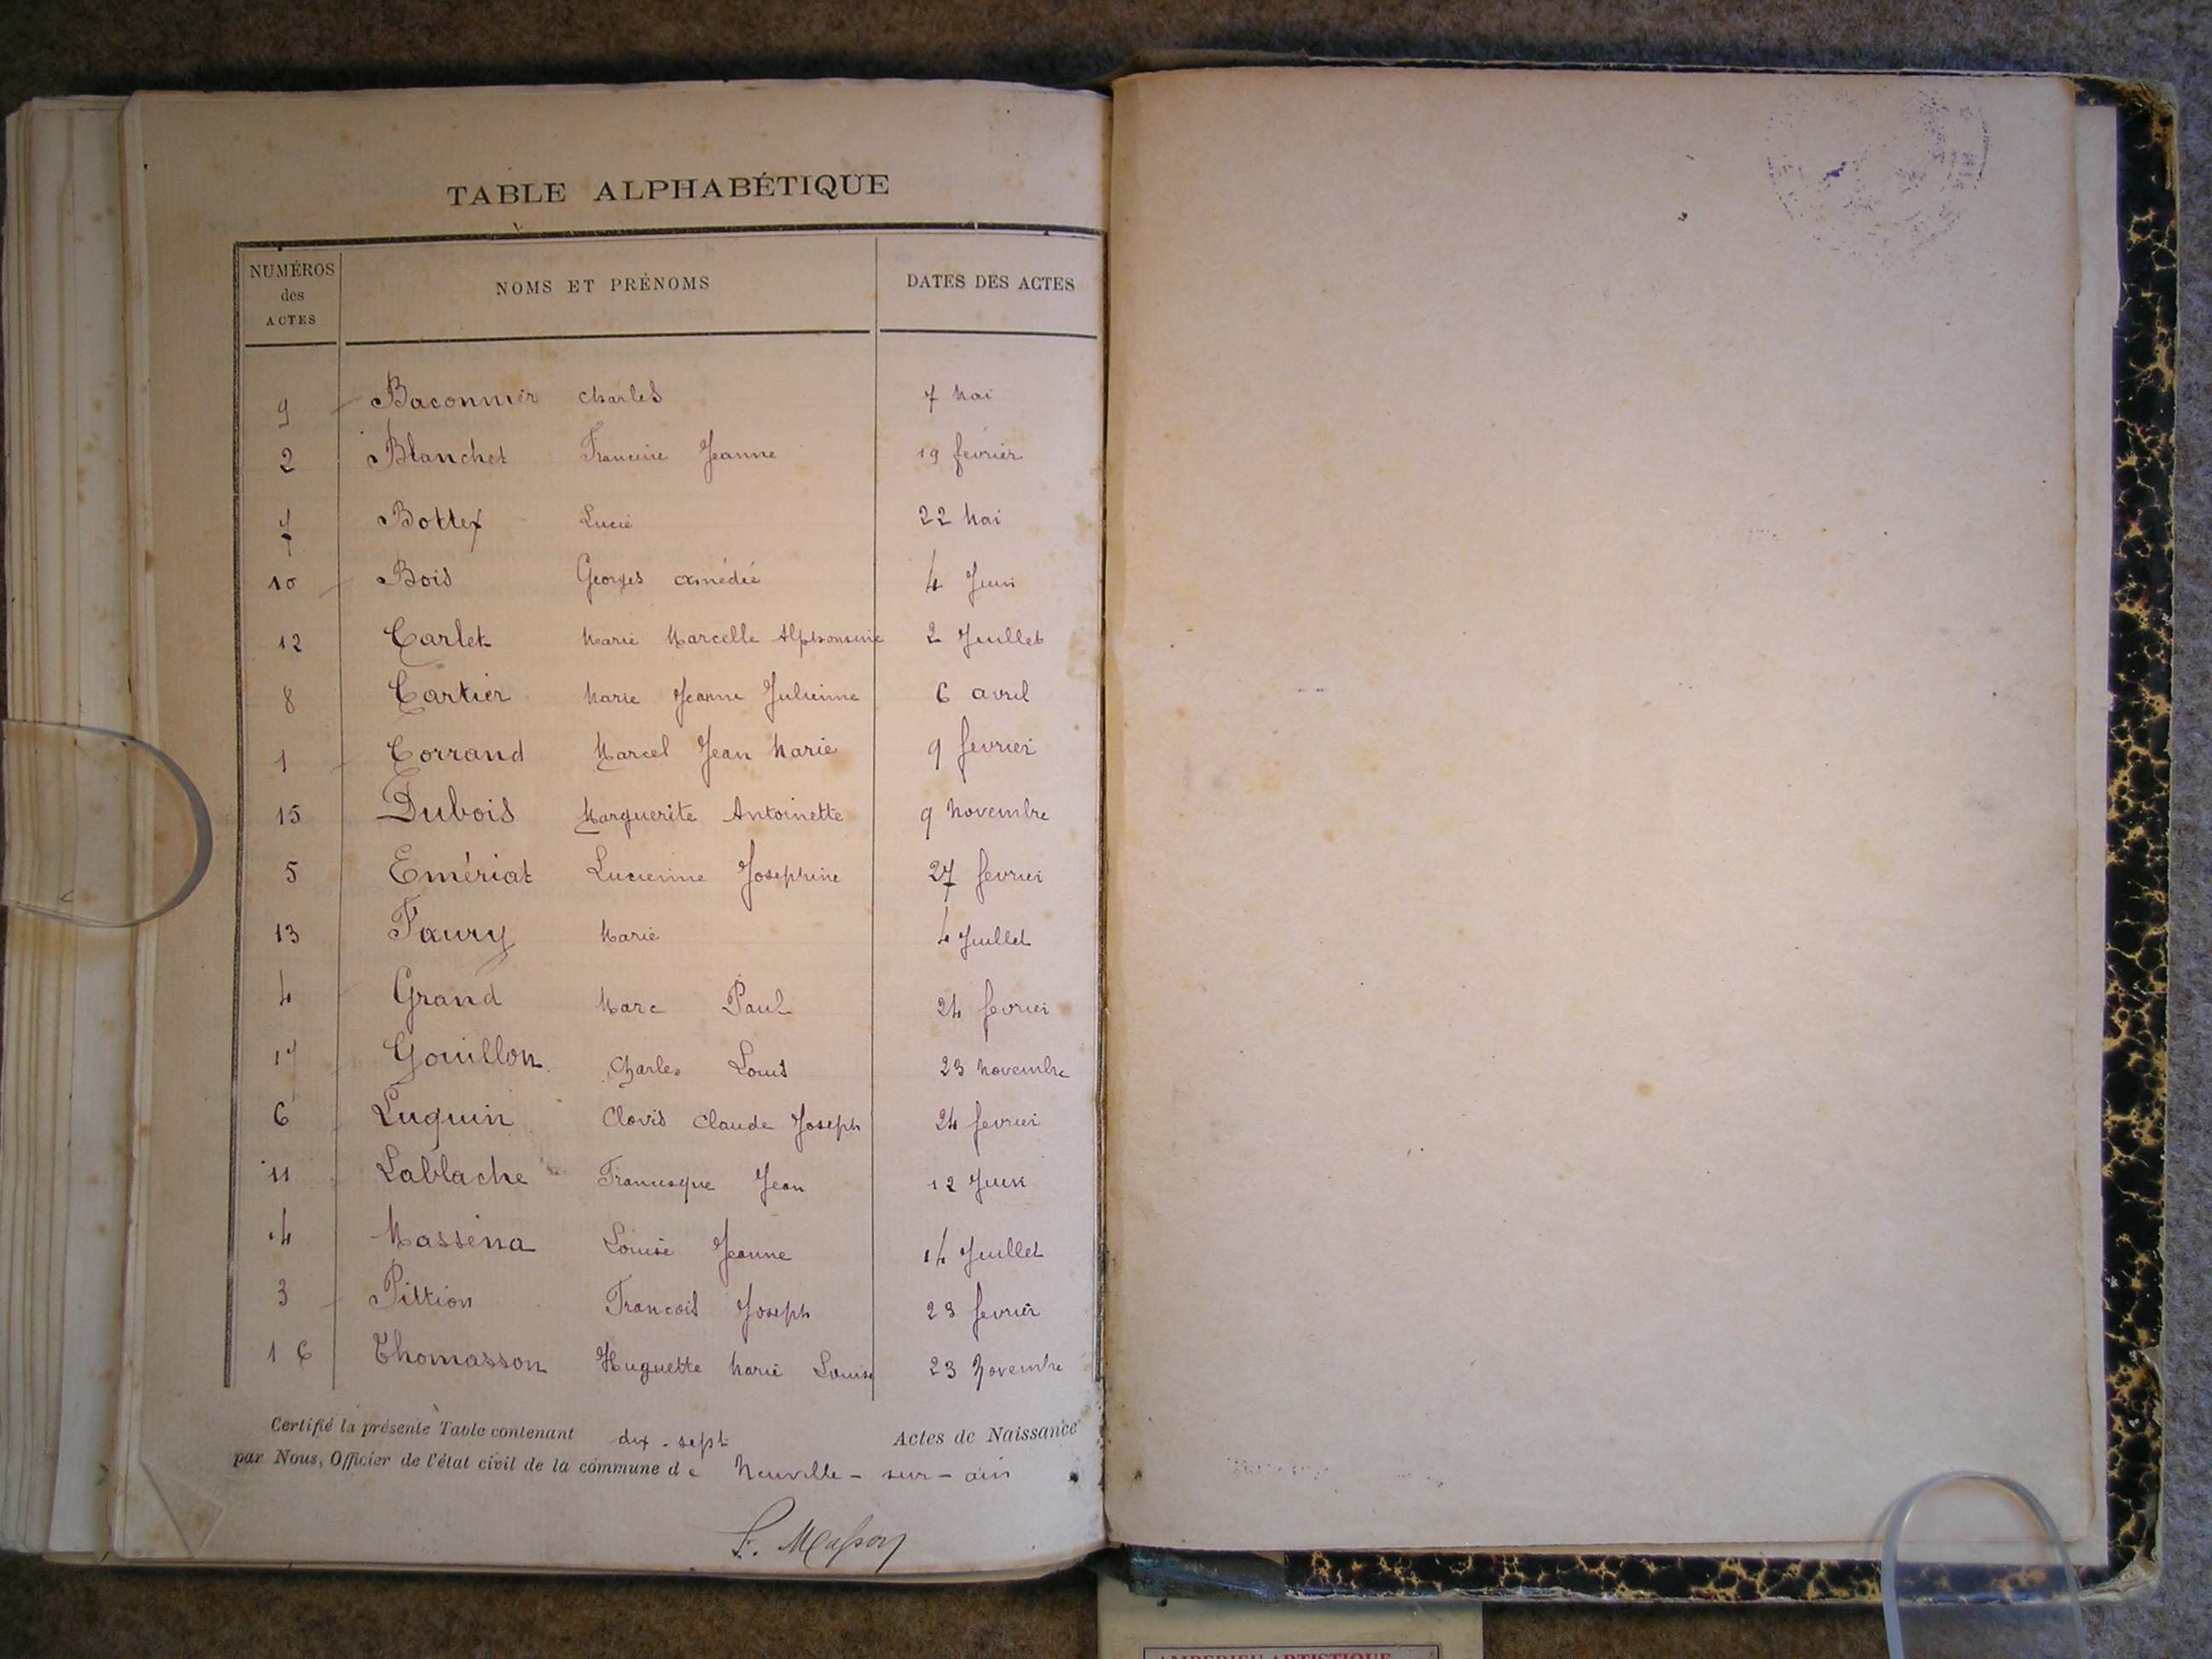 TABLE ALPHABÉTIQUE
NUMÉROS des ACTES NOMS ET PRÉNOMS DATES DES ACTES
9 Baconnier Charles 7 Mai
2 Blanchet Francine Jeanne 19 fevrier
7 Bottex Lucie 22 Mai
10 Bois Georges amédée 4 Juin
12 Carlet Marie Marcelle Alphonsine 2 Juillet
8 Cartier Marie Jeanne Julienne 6 avril
1 Corrand Marcel Jean Marie 9 fevrier
15 Dubois Marguerite Antoinette 9 Novembre
5 Emériat Lucienne Josephine 27 fevrier
13 Faury Marie 4 Juillet
4 Grand Marc Paul 24 fevrier
17 Gouillon Charles Louis 23 Novembre
6 Luquin Clovis Claude Joseph 24 fevrier
11 Lablache Francisque Jean 12 Juin
14 Masséna Louise Jeanne 14 Juillet
3 Pittion Francois Joseph 23 fevrier
16 Thomasson Huguette Marie Louise 23 Novembre
Certifié la présente Table contenant dix-sept Actes de Naissance
par Nous, Officier de l'état civil de la commune de Neuville-sur-ain
AMBERIEU ARTISTIQUE